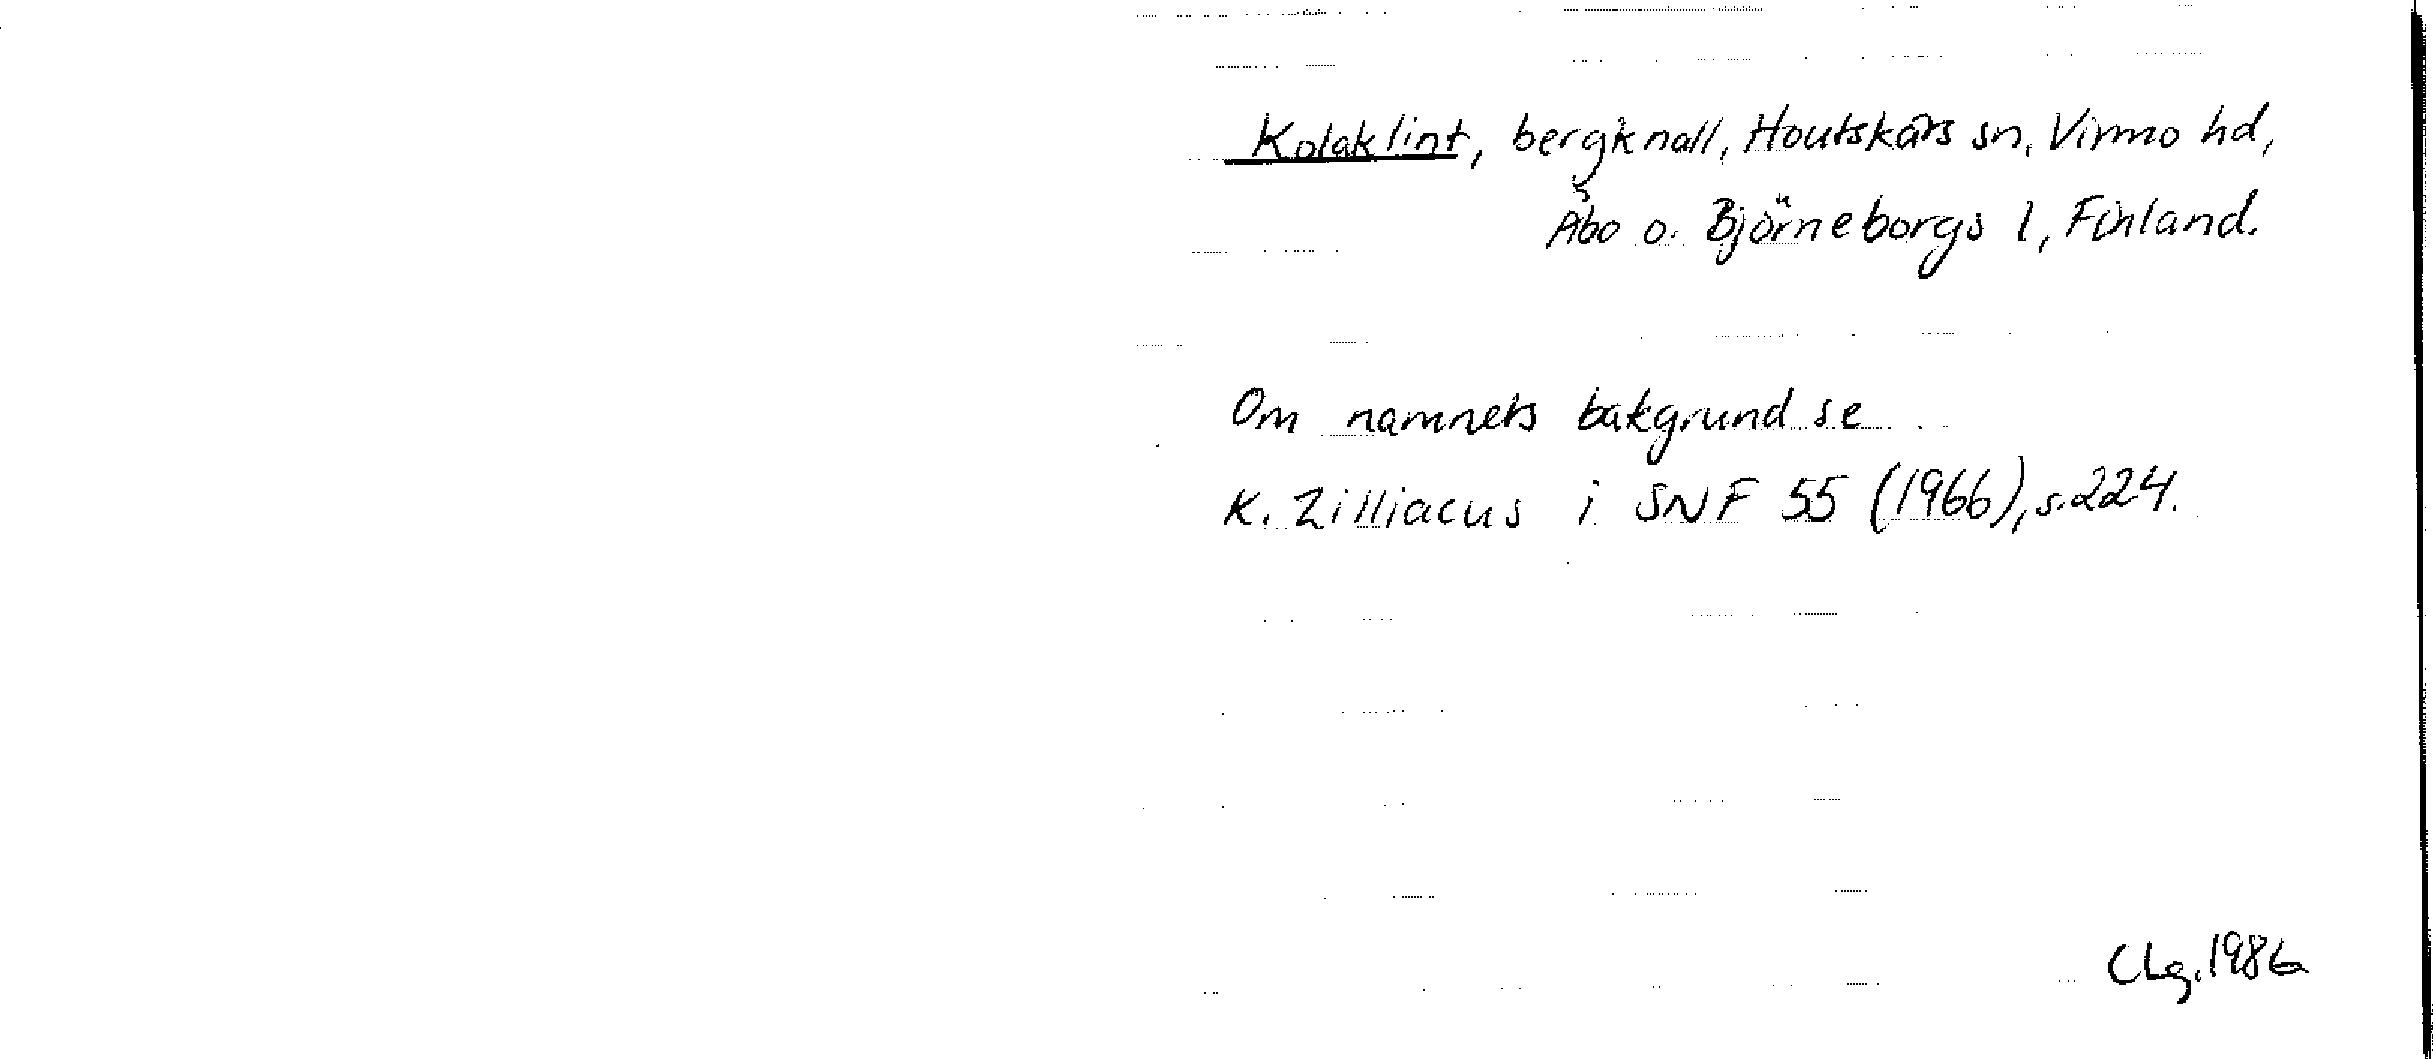 Kolaklint, bergknall, Houtskärs sn, Virmo hd,
Åbo o. Björneborgs l, Finland.
Om namnets bakgrund se
K. Zilliacus i SNF 55 (1966), s. 224.
CLg. 1986